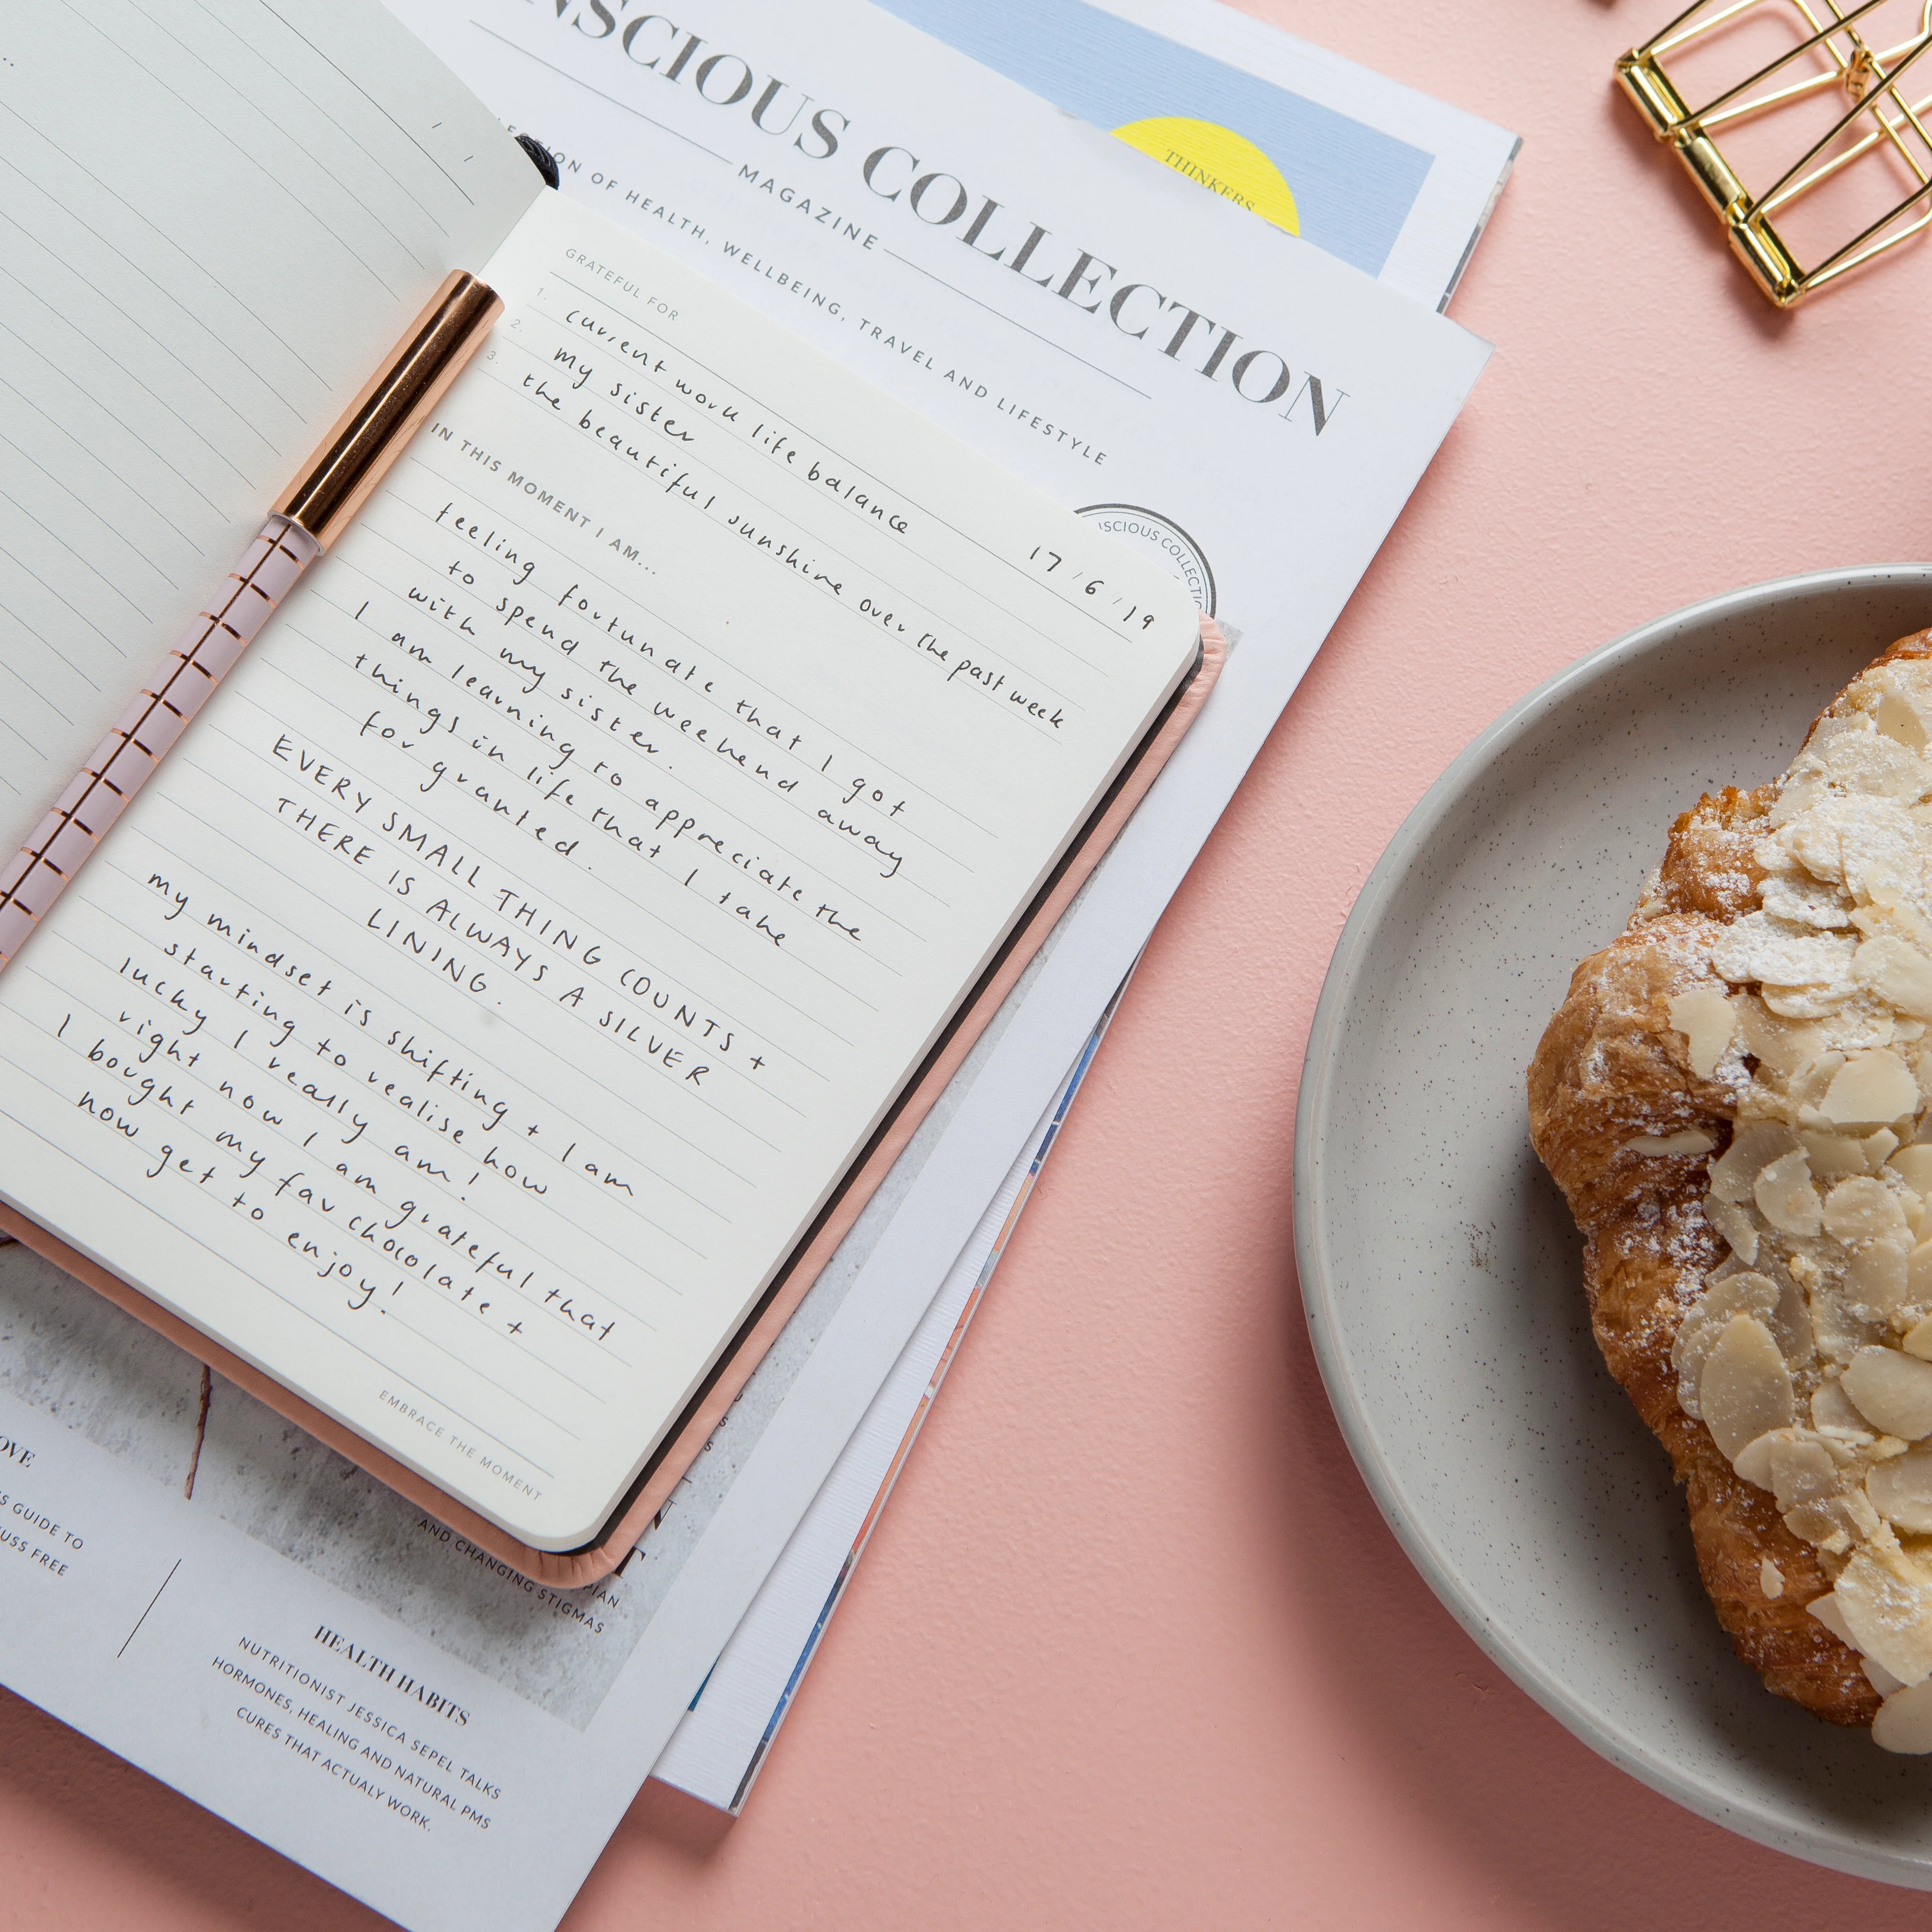 NSCIOUS COLLECTION
MAGAZINE
OF HEALTH, WELLBEING, TRAVEL AND LIFESTYLE
THINKERS
SCIOUS COLLECTIO
GRATEFUL FOR
1. current work life balance
2. my sister
3. the beautiful sunshine over the past week
17/6/19
IN THIS MOMENT I AM...
feeling fortunate that I got
to spend the weekend away
with my sister.
I am learning to appreciate the
things in life that I take
for granted.
EVERY SMALL THING COUNTS +
THERE IS ALWAYS A SILVER
LINING.
my mindset is shifting + I am
starting to realise how
lucky I really am!
right now I am grateful that
I bought my fav chocolate +
now get to
enjoy!
EMBRACE THE MOMENT
OVE
S GUIDE TO
USS FREE
PIAN
AND CHANGING STIGMAS
HEALTH HABITS
NUTRITIONIST JESSICA SEPEL TALKS
HORMONES, HEALING AND NATURAL PMS
CURES THAT ACTUALY WORK.